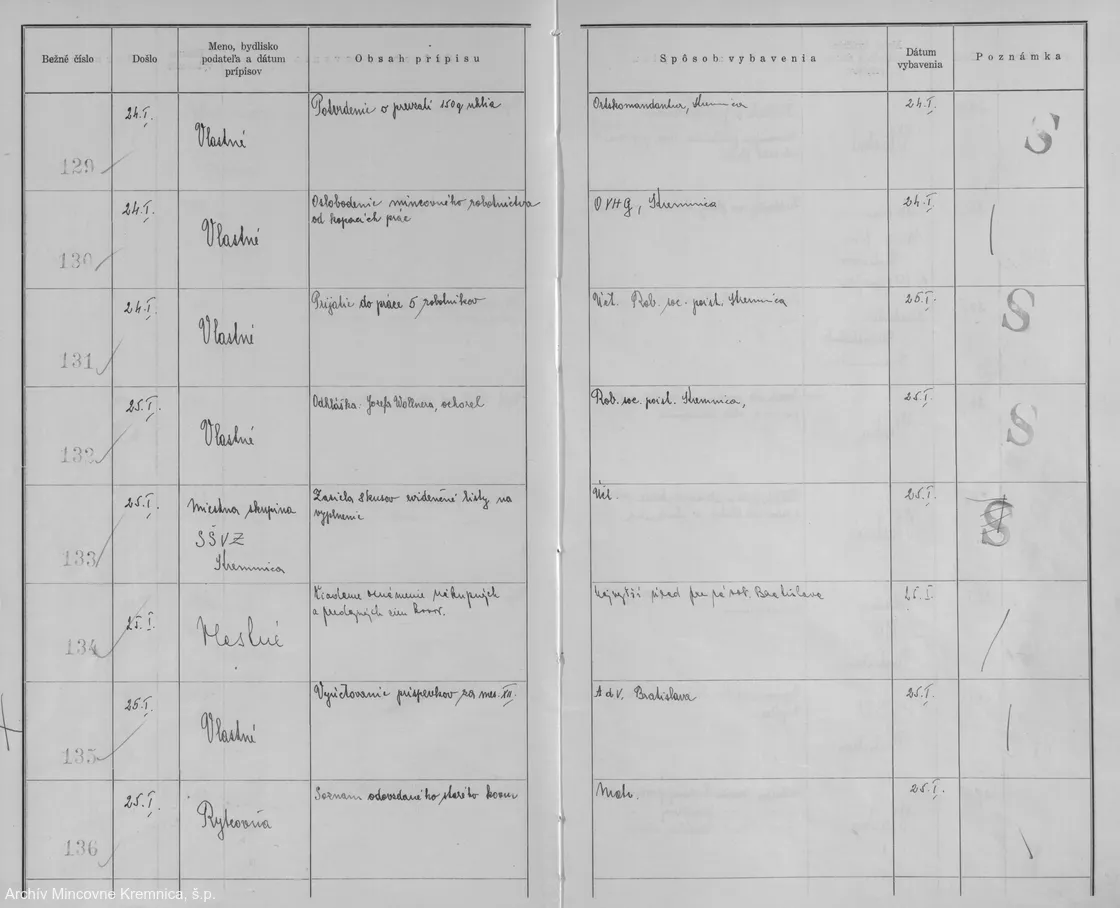 Bežné číslo
Došlo
Meno, bydlisko
podateľa a dátum
prípisov
Obsah prípisu
Spôsob vybavenia
Dátum
vybavenia
Poznámka
129
24.I.
Vlastné
Potvrdenie o prevzatí 150 q uhlia
Ortskomandantur, Kremnica
24.I.
S
130
24.I.
Vlastné
Oslobodenie mincovného robotníctva
od kopacích prác
OVHG, Kremnica
24.I.
131
24.I.
Vlastné
Prijatie do práce 5 robotníkov
Účt. Rob. soc. poist. Kremnica
25.I.
S
132
25.I.
Vlastné
Odhláška Jozefa Wollnera, ochorel
Rob. soc. poist. Kremnica,
25.I.
S
133
25.I.
Miestna skupina
SŠVZ
Kremnica
Zasiela skusov evidenčné listy na
vyplnenie
Účt.
25.I.
S
134
25.I.
Vlastné
Žiadame oznámenie nákupných
a predajných cien kovov.
Najvyšší úrad pre zásob. Bratislava
25.I.
135
25.I.
Vlastné
Vyúčtovanie príspevkov za mes. XII.
Bratislava
25.I.
136
25.I.
Rytcovňa
Soznam odovzdaného starého kovu
Mat.
25.I.
Archív Mincovne Kremnica, š.p.